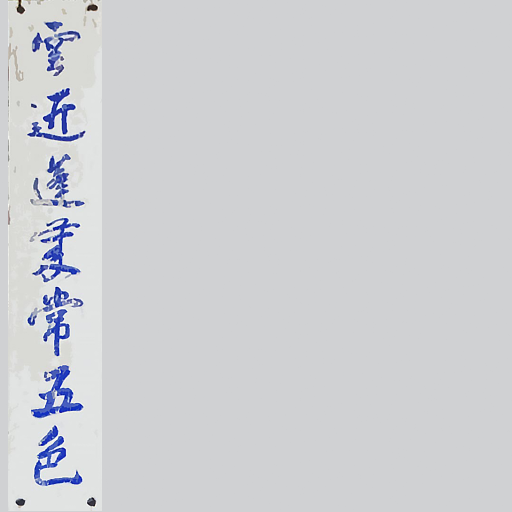 雲近蓬莱常五色